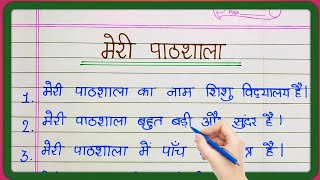 मेरी पाठशाला
1. मेरी पाठशाला का नाम शिशु विद्यालय है।
2. मेरी पाठशाला बहुत बड़ी और सुंदर है।
3. मेरी पाठशाला में पाँच है।